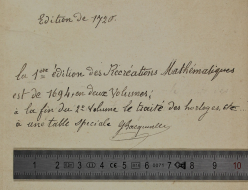 Edition de 1720.
la 1ère édition des Récréations Mathématiques
est de 1694, en deux Volumes;
à la fin du 2e volume le traité des horloges etc
a une table spéciale
1 2 3 4 5 6 7 8 9 10